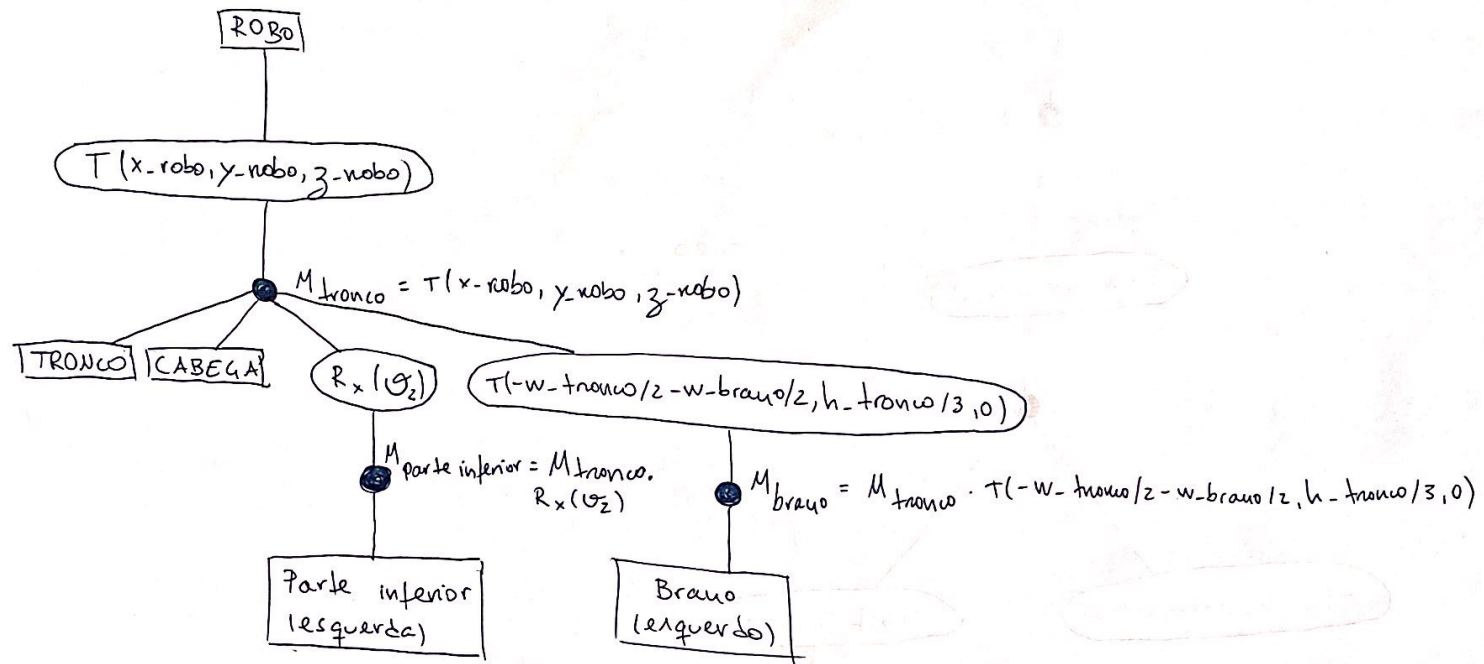 ROBO
T(x_robo, y_robo, z_robo)
M tronco = T(x_robo, y_robo, z_robo)
TRONCO
CABEÇA
Rx(θ2)
T(-w_tronco/2-w_braço/2, h_tronco/3,0)
M parte inferior = M tronco.
Rx(θ2)
M braço = M tronco . T(-w_tronco/2-w_braço/2, h_tronco/3,0)
Parte inferior
(esquerda)
Braço
(esquerdo)